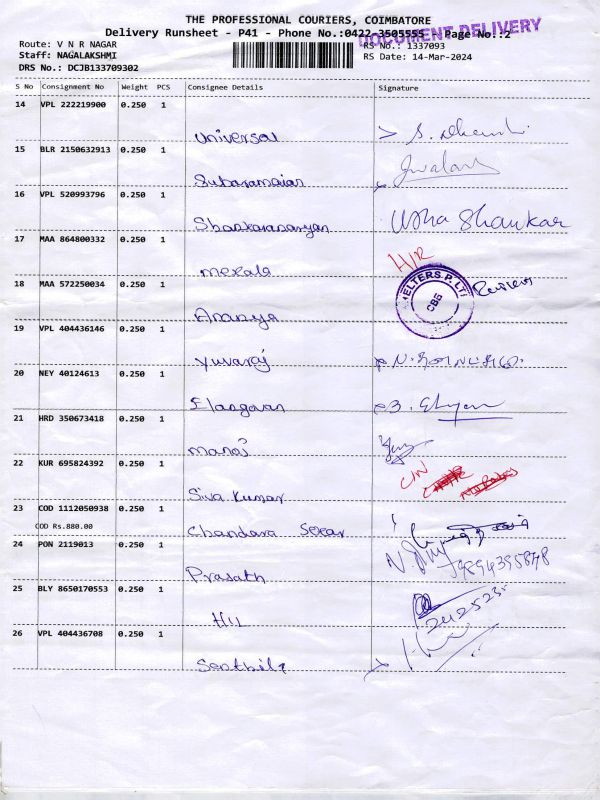 THE PROFESSIONAL COURIERS, COIMBATORE
Delivery Runsheet - P41 - Phone No.:0422-3505555 - Page No.:2
DOCUMENT DELIVERY
Route: V N R NAGAR
RS No.: 1337093
Staff: NAGALAKSHMI
RS Date: 14-Mar-2024
DRS No.: DCJB133709302
S No Consignment No Weight PCS Consignee Details Signature
14 VPL 222219900 0.250 1
Universal
15 BLR 2150632913 0.250 1
Subaramaian
16 VPL 520993796 0.250 1
Usha Shankar
17 MAA 864800332 0.250 1
Mekala H/R
18 MAA 572250034 0.250 1
SHELTERS P. LTD CBE
Ananya
19 VPL 404436146 0.250 1
Yuvaraj
20 NEY 40124613 0.250 1
Elangovan
21 HRD 350673418 0.250 1
Manoj
22 KUR 695824392 0.250 1
C/N
Siva Kumar
23 COD 1112050938 0.250 1
COD Rs.880.00
Chandara Sekar
24 PON 2119013 0.250 1
Prasath
25 BLY 8650170553 0.250 1
26 VPL 404436708 0.250 1